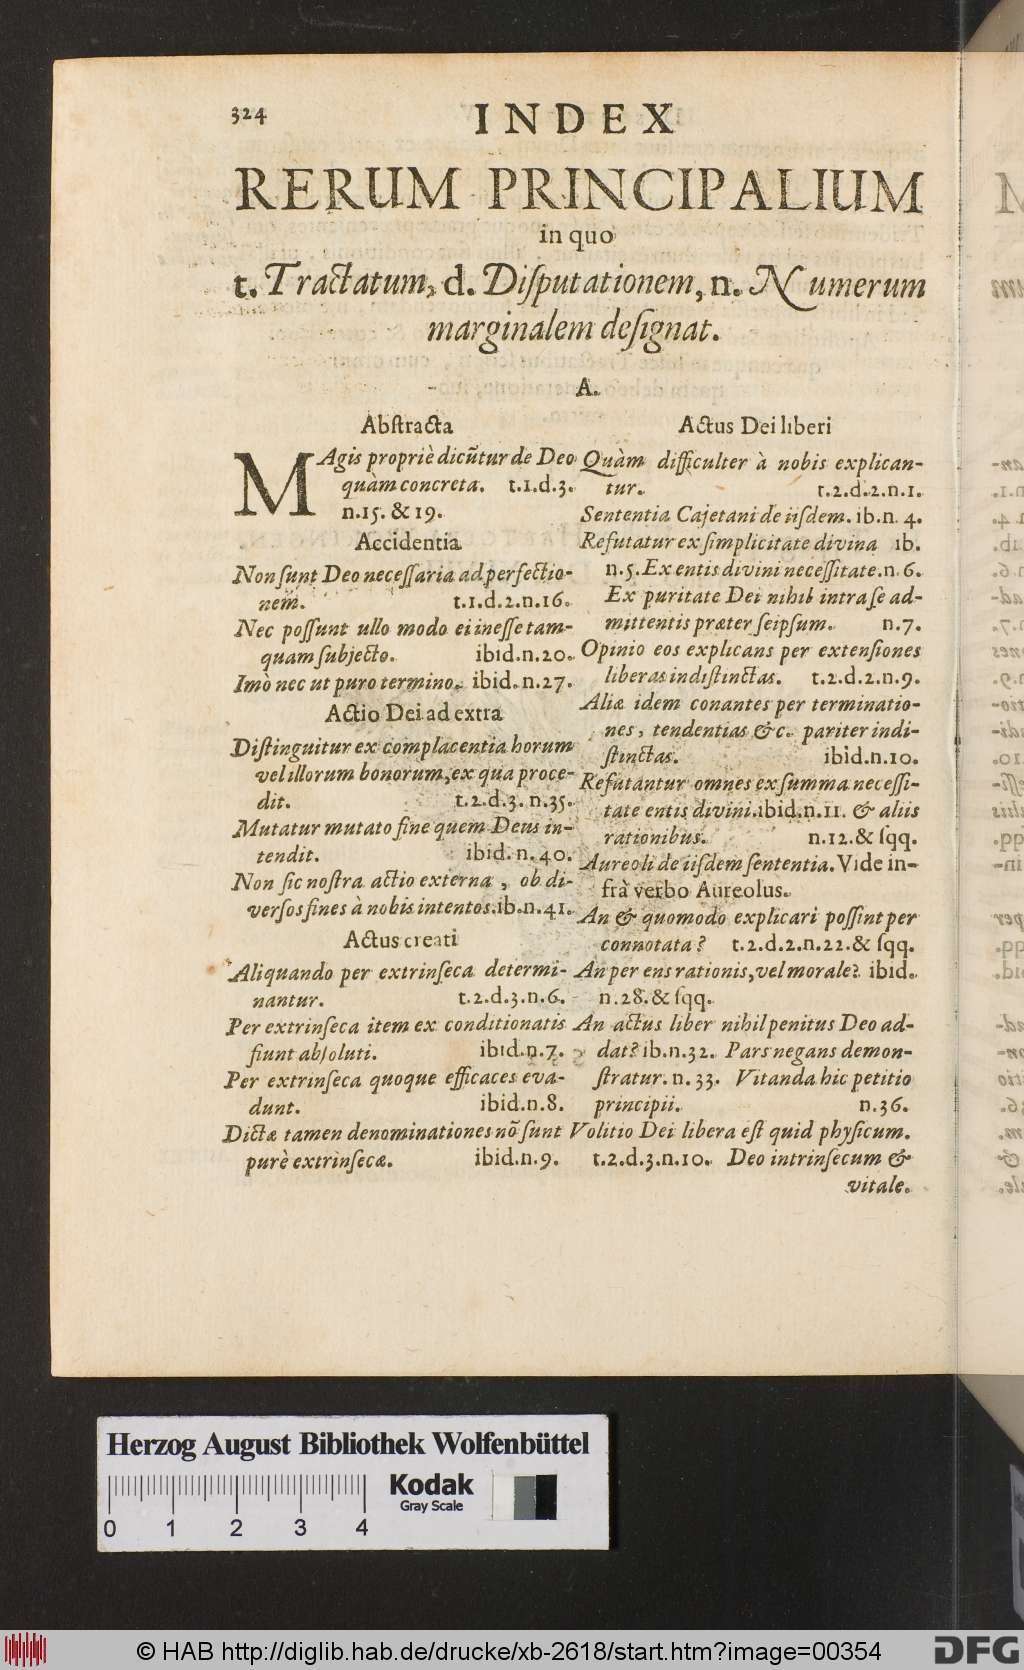 324
INDEX
RERUM PRINCIPALIUM
in quo
t. Tractatum, d. Diſputationem, n. Numerum
marginalem deſignat.
A.
Abſtracta
MAgis propriè dicũtur de Deo
quàm concreta. t.1.d.3.
n.15. & 19.
Accidentia
Non ſunt Deo neceſſaria ad perfectio-
nem. t.1.d.2.n.16.
Nec poſſunt ullo modo ei ineſſe tam-
quam ſubjecto. ibid.n.20.
Imò nec ut puro termino. ibid.n.27.
Actio Dei ad extra
Diſtinguitur ex complacentia horum
vel illorum bonorum, ex qua proce-
dit. t.2.d.3. n.35.
Mutatur mutato fine quem Deus in-
tendit. ibid. n.40.
Non ſic noſtra actio externa, ob di-
verſos fines à nobis intentos.ib.n.41.
Actus creati
Aliquando per extrinſeca determi-
nantur. t.2.d.3.n.6.
Per extrinſeca item ex conditionatis
fiunt abſoluti. ibid.n.7.
Per extrinſeca quoque efficaces eva-
dunt. ibid.n.8.
Dictæ tamen denominationes nõ ſunt
purè extrinſecæ. ibid.n.9.
Actus Dei liberi
Quàm difficulter à nobis explican-
tur. t.2.d.2.n.1.
Sententia Cajetani de iiſdem. ib.n. 4.
Refutatur ex ſimplicitate divina ib.
n.5. Ex entis divini neceſſitate.n.6.
Ex puritate Dei nihil intra ſe ad-
mittentis præter ſeipſum. n.7.
Opinio eos explicans per extenſiones
liberas indiſtinctas. t.2.d.2.n.9.
Aliæ idem conantes per terminatio-
nes, tendentias &c. pariter indi-
ſtinctas. ibid.n.10.
Refutantur omnes ex ſumma neceſſi-
tate entis divini.ibid.n.11. & aliis
rationibus. n.12.& ſqq.
Aureoli de iiſdem ſententia. Vide in-
frà verbo Aureolus.
An & quomodo explicari poſſint per
connotata? t.2.d.2.n.22.& ſqq.
An per ens rationis, vel morale? ibid.
n.28. & ſqq.
An actus liber nihil penitus Deo ad-
dat? ib.n.32. Pars negans demon-
ſtratur. n.33. Vitanda hic petitio
principii. n.36.
Volitio Dei libera eſt quid phyſicum.
t.2.d.3.n.10. Deo intrinſecum &
vitale.
Herzog August Bibliothek Wolfenbüttel
Kodak
Gray Scale
0 1 2 3 4
© HAB http://diglib.hab.de/drucke/xb-2618/start.htm?image=00354
DFG